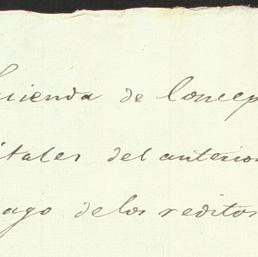 hacienda de Concep
itales del anterior
ago de los reditos